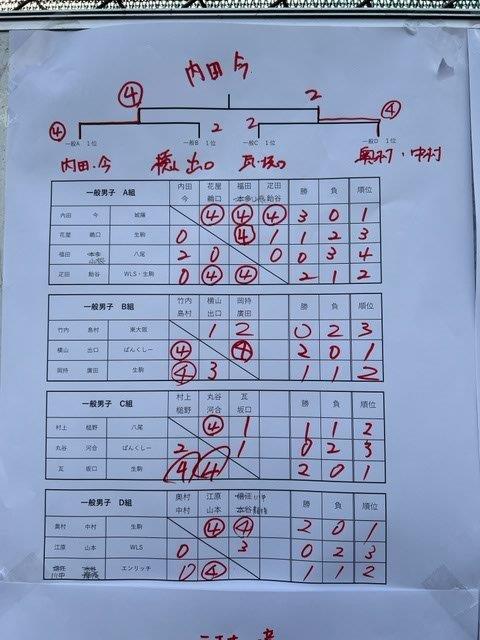 内田 今
④ 2
④ 2 2 ④
一般A 1位 一般B 1位 一般C 1位 一般D 1位
内田・今 横山 出口 瓦・坂口 奥村・中村
一般男子 A組 内田 今 花屋 鵜口 福田 疋田 鮐谷 勝 負 順位
内田 今 城陽 ④ ④ ④ 3 0 1
花屋 鵜口 生駒 0 ④ 1 1 2 3
福田 八尾 2 0 0 0 3 4
疋田 鮐谷 WLS・生駒 0 ④ ④ 2 1 2
一般男子 B組 竹内 島村 横山 出口 岡持 廣田 勝 負 順位
竹内 島村 東大阪 1 2 0 2 3
横山 出口 ぱんくしー ④ ④ 2 0 1
岡持 廣田 生駒 ④ 3 1 1 2
一般男子 C組 村上 樋野 丸谷 河合 瓦 坂口 勝 負 順位
村上 樋野 八尾 ④ 1 1 1 2
丸谷 河合 ぱんくしー 2 1 0 2 3
瓦 坂口 生駒 ④ ④ 2 0 1
一般男子 D組 奥村 中村 江原 山本 勝 負 順位
奥村 中村 生駒 ④ ④ 2 0 1
江原 山本 WLS 0 3 0 2 3
エンリッチ 0 ④ 1 1 2